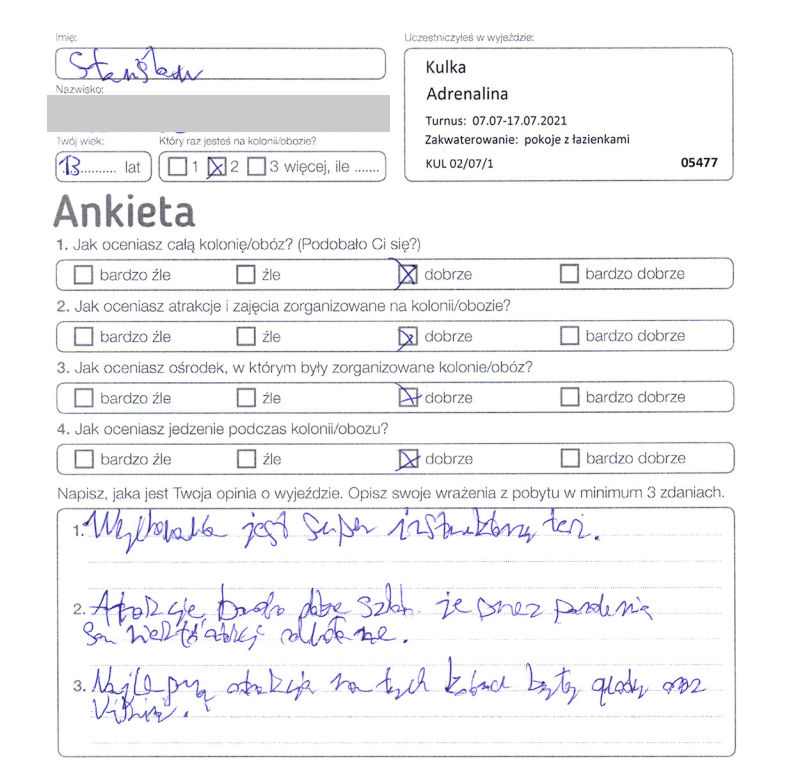 Imię:
Stanisław
Nazwisko:
Twój wiek:
Który raz jesteś na kolonii/obozie?
13 .......... lat
1 2 3 więcej, ile .......
Uczestniczyłeś w wyjeździe:
Kulka
Adrenalina
Turnus: 07.07-17.07.2021
Zakwaterowanie: pokoje z łazienkami
KUL 02/07/1 05477
Ankieta
1. Jak oceniasz całą kolonię/obóz? (Podobało Ci się?)
bardzo źle źle dobrze bardzo dobrze
2. Jak oceniasz atrakcje i zajęcia zorganizowane na kolonii/obozie?
bardzo źle źle dobrze bardzo dobrze
3. Jak oceniasz ośrodek, w którym były zorganizowane kolonie/obóz?
bardzo źle źle dobrze bardzo dobrze
4. Jak oceniasz jedzenie podczas kolonii/obozu?
bardzo źle źle dobrze bardzo dobrze
Napisz, jaka jest Twoja opinia o wyjeździe. Opisz swoje wrażenia z pobytu w minimum 3 zdaniach.
1. jest super instruktorzy też.
2. Atrakcje bardzo dobre że przez
są
3. atrakcją na tych były quady oraz